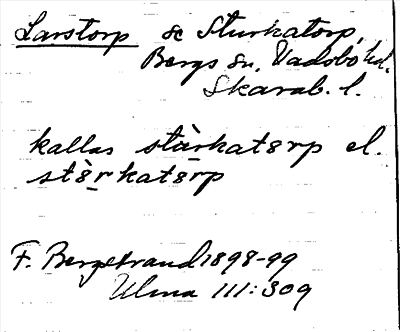 Larstorp se Sturkatorp,
Bergs sn, Vadsbo hd.
Skarab. l.
kallas stàrkatɘrp el.
stɘ̀rkatɘrp
F. Bergstrand 1898-99
Ulma 111:309